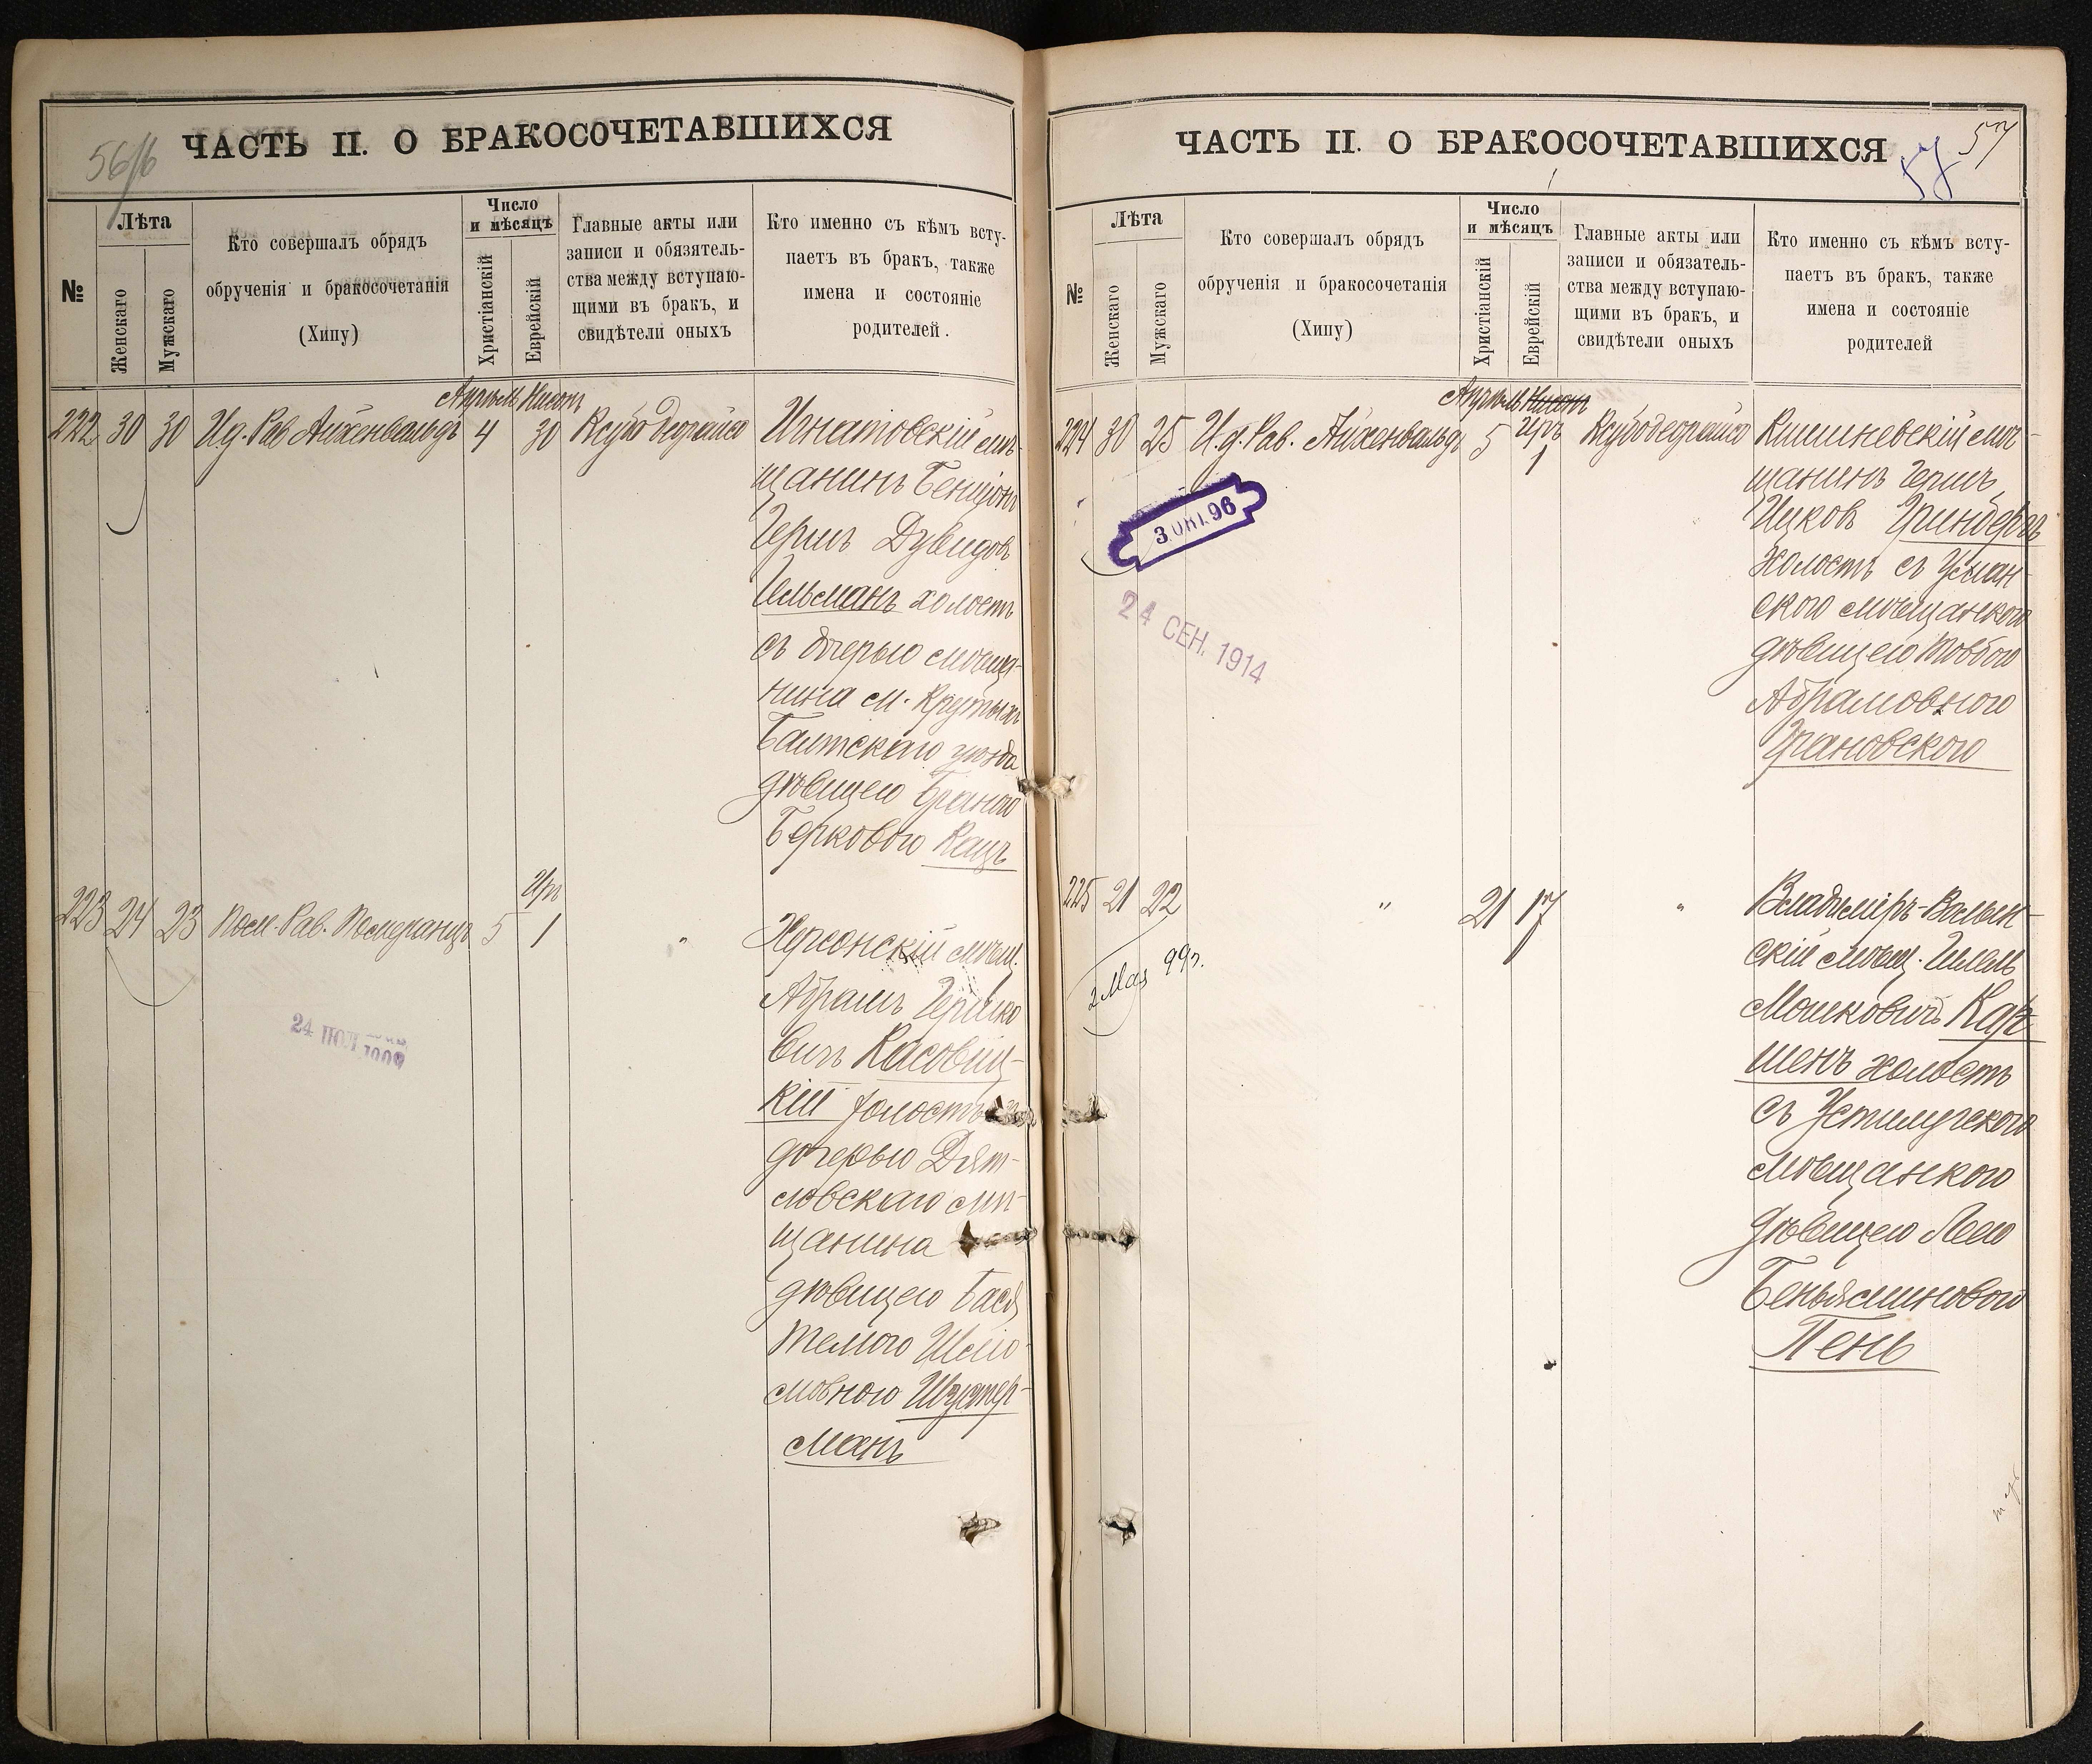 56/б
ЧАСТЬ II. О БРАКОСОЧЕТАВШИХСЯ
№
Лѣта
Женскаго
Мужскаго
Кто совершалъ обрядъ
обрученія и бракосочетанія
(Хипу)
Число
и мѣсяцъ
Христіанскій
Еврейскій
Главные акты или
записи и обязятель-
ства между вступаю-
щими въ бракъ, и
свидѣтели оныхъ
Кто именно съ кѣмъ всту-
паетъ въ бракъ, также
имена и состояніе
родителей.
Апрѣль Нисонъ
222 30 30 И.д. Рав Айхенвальдъ 4 30 Ксубо деорайсо
Игнатовскій мѣ-
щанинъ Бенціонъ
Гершъ Дувидовъ
Гельманъ холостъ
съ дчерью мѣща-
нина м. Крутыхъ
Балтскаго уѣзда
дѣвицею Браною
Берковою Кацъ
Иръ
223 24 23 Пом. Рав. Померанцъ 5 1 "
Херсонскій мѣщ.
Абрамъ Гершко
вичъ Касовиц-
кій холостъ съ
дочерью Дят-
ловскаго мѣ-
щанина
дѣвицею Бася
Темою Шмо-
мовною Шустер-
манъ
24 1909
ЧАСТЬ II. О БРАКОСОЧЕТАВШИХСЯ
57 57
№
Лѣта
Женскаго
Мужскаго
Кто совершалъ обрядъ
обрученія и бракосочетанія
(Хипу)
Число
и мѣсяцъ
Христіанскій
Еврейскій
Главные акты или
записи и обязатель-
ства между вступаю-
щими въ бракъ, и
свидѣтели оныхъ
Кто именно съ кѣмъ всту-
паетъ въ бракъ, также
имена и состояніе
родителей
Апрѣль Нисонъ
Иръ
224 30 25 И.д. Рав. Айхенвальдъ 5 1 Ксубо деорайсо
Кишиневскій мѣ-
щанинъ Гершъ
Ицков Гринбергъ
холостъ съ Уман-
скою мѣщанкою
дѣвицею Товбою
Абрамовною
Грановскою
3 ОКТ. 96
24 СЕН. 1914
225 21 22 " 21 17 "
Владимиръ-Волын-
скій мѣщ. Гилель
Мошковичъ Кар-
шенъ холостъ
съ Устилугскою
мѣщанкою
дѣвицею Леею
Беньяминовою
Пень
2 Мая 99 г.